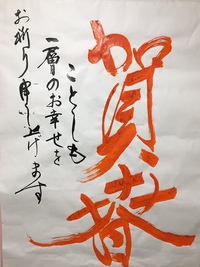 賀春
ことしも
一層のお幸せを
お祈り申し上げます